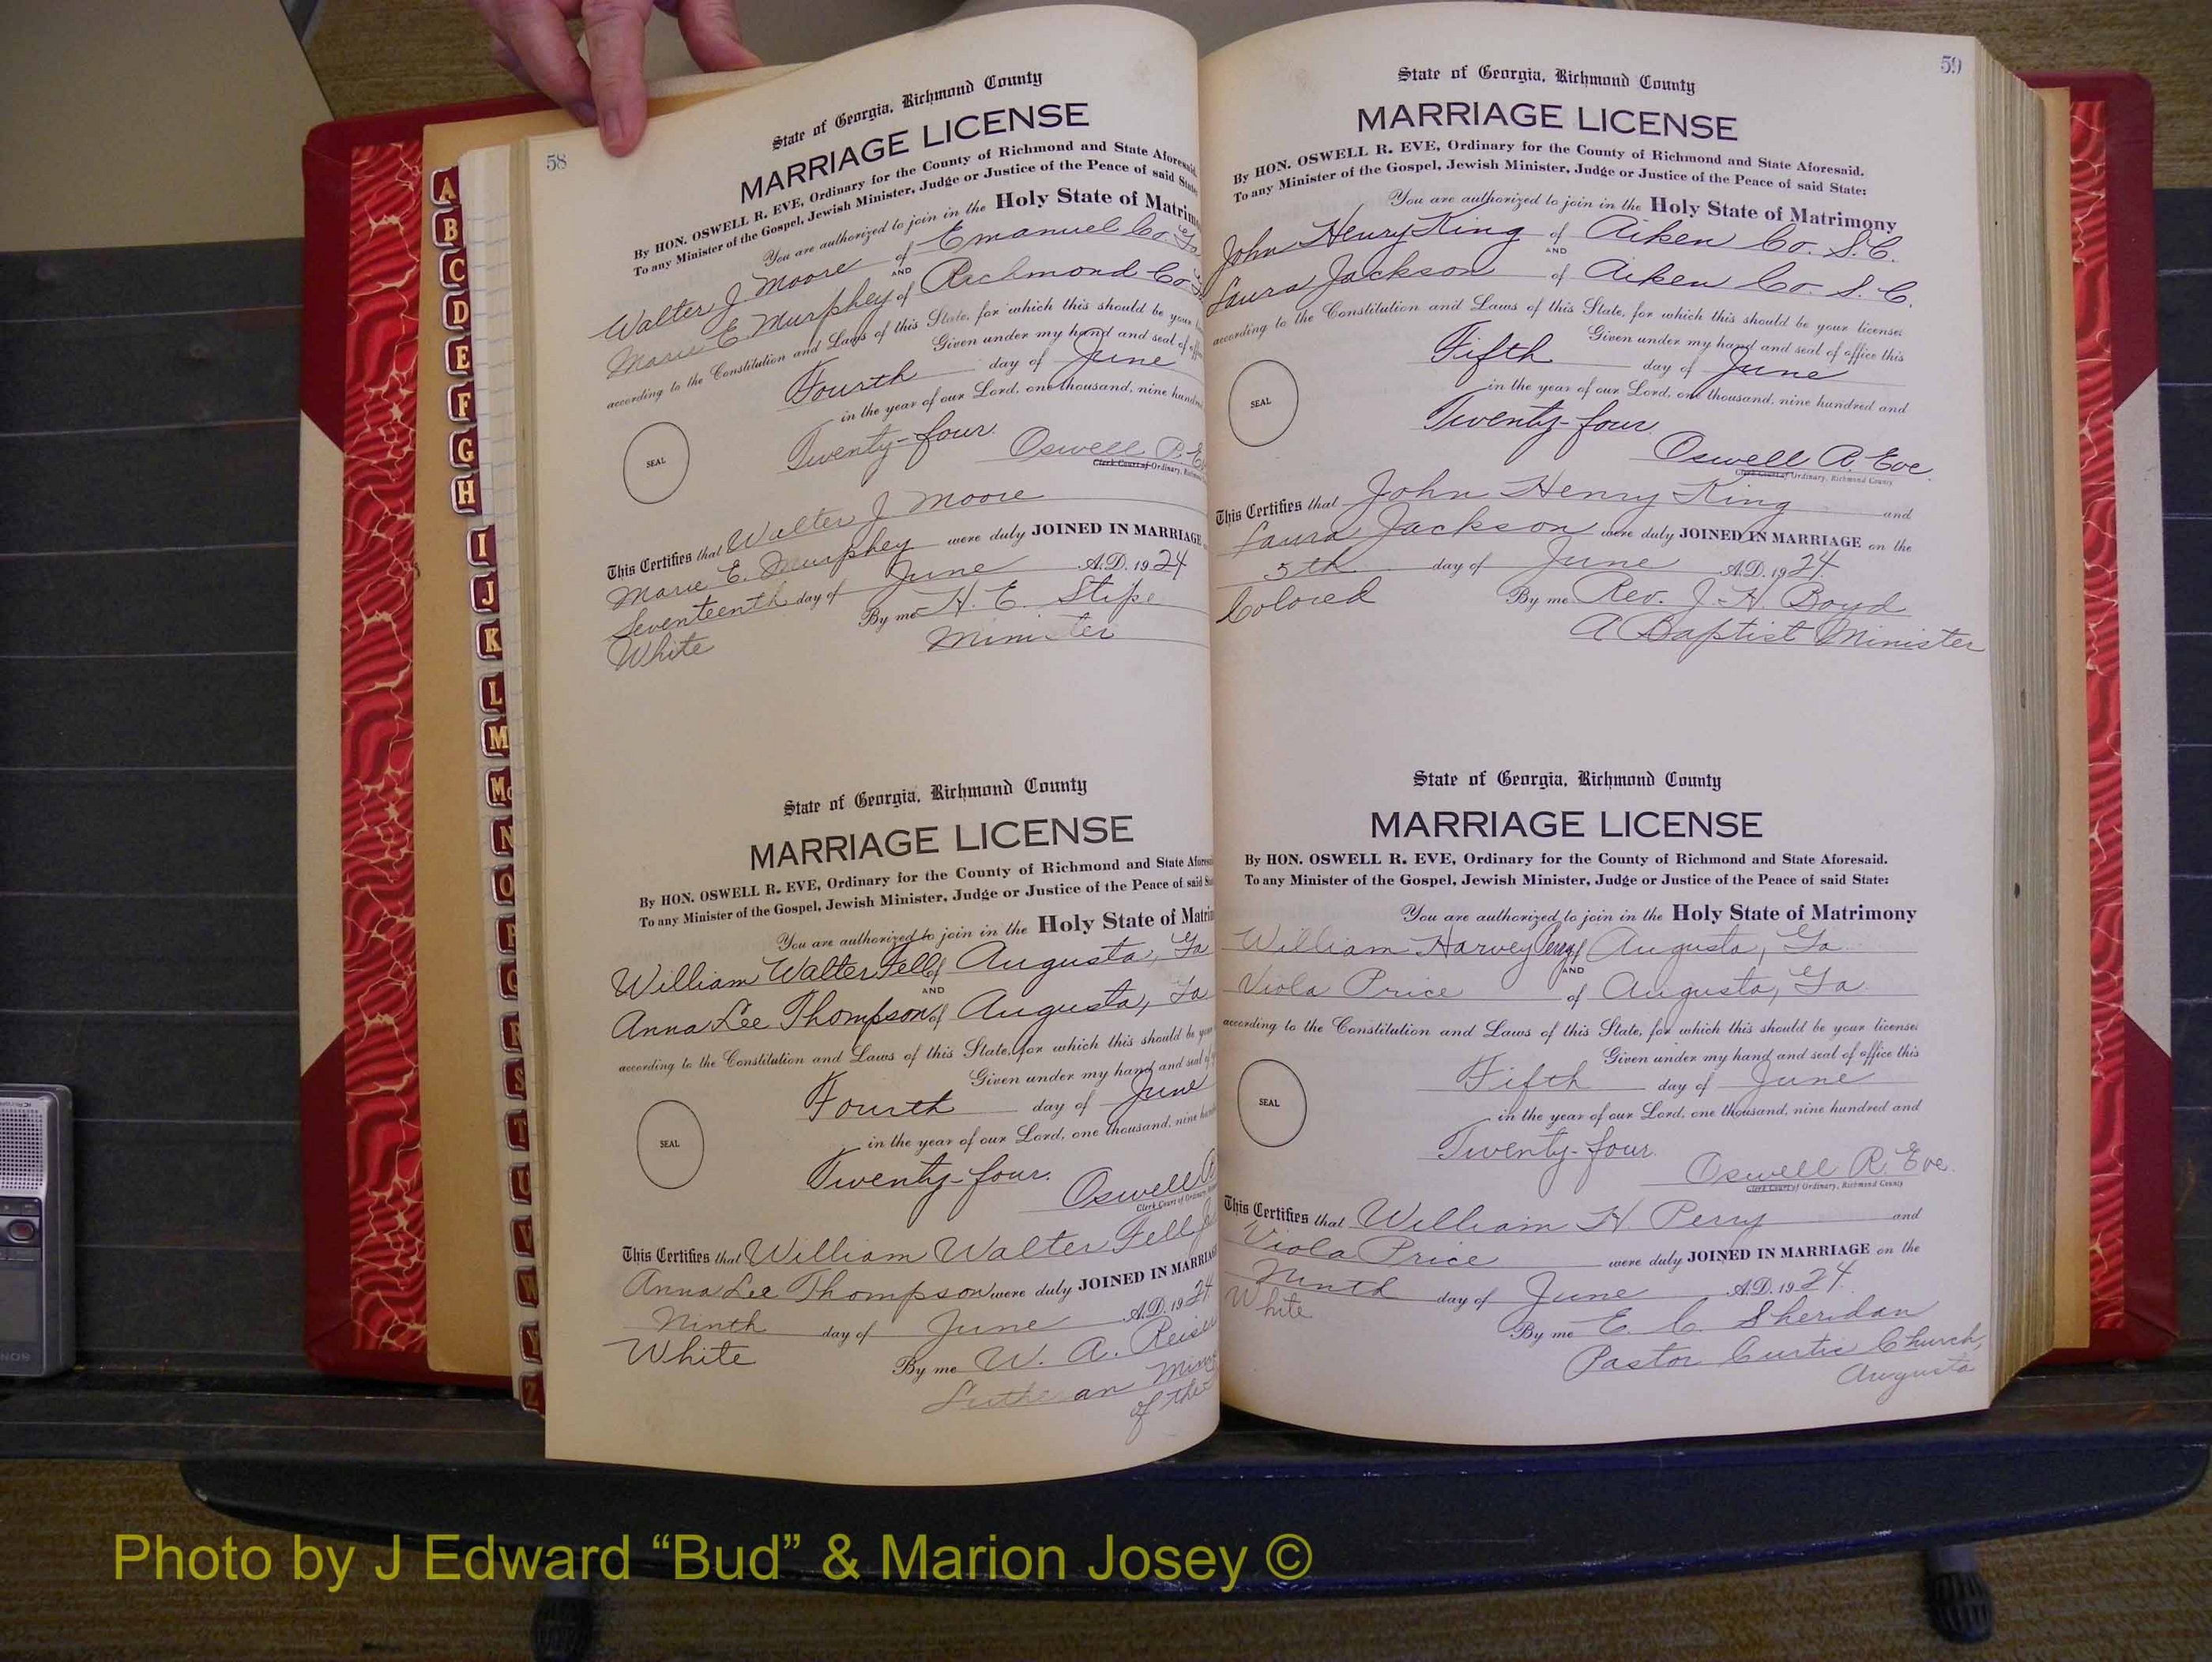 58
State of Georgia, Richmond County
MARRIAGE LICENSE
By HON. OSWELL R. EVE, Ordinary for the County of Richmond and State Aforesaid.
To any Minister of the Gospel, Jewish Minister, Judge or Justice of the Peace of said State
You are authorized to join in the Holy State of Matrim
Walter J Moore of Emanuel Co. Ga
AND
Marie E. Murphey of Richmond Co
according to the Constitution and Laws of this State, for which this should be your
Given under my hand and seal of off
Fourth day of June
in the year of our Lord, one thousand, nine hundre
SEAL
Twenty-four.
Oswell R. E
Clerk Court of Ordinary,
This Certifies that Walter J Moore
Marie E. Murphey were duly JOINED IN MARRIAGE
Seventeenth day of June A.D. 1924
White By me H. E. Stipe
Minister
State of Georgia, Richmond County
MARRIAGE LICENSE
By HON. OSWELL R. EVE, Ordinary for the County of Richmond and State Afores
To any Minister of the Gospel, Jewish Minister, Judge or Justice of the Peace of said
You are authorized to join in the Holy State of Matri
William Walter Fell of Augusta, Ga
AND
Anna Lee Thompson of Augusta, Ga
according to the Constitution and Laws of this State, for which this should be
Given under my hand and seal of
Fourth day of June
in the year of our Lord, one thousand, nine
SEAL
Twenty-four.
Oswell
Clerk Court of Ordinary,
This Certifies that William Walter Fell
Anna Lee Thompson were duly JOINED IN MARRIAGE
Ninth day of June A.D. 1924
White By me W. A. Reiser
Lutheran
of the
59
State of Georgia, Richmond County
MARRIAGE LICENSE
By HON. OSWELL R. EVE, Ordinary for the County of Richmond and State Aforesaid.
To any Minister of the Gospel, Jewish Minister, Judge or Justice of the Peace of said State:
You are authorized to join in the Holy State of Matrimony
John Henry King of Aiken Co. S.C.
AND
Laura Jackson of Aiken Co. S.C.
according to the Constitution and Laws of this State, for which this should be your license:
Given under my hand and seal of office this
Fifth day of June
in the year of our Lord, one thousand, nine hundred and
SEAL
Twenty-four.
Oswell R. Eve.
Clerk Court of Ordinary, Richmond County
This Certifies that John Henry King and
Laura Jackson were duly JOINED IN MARRIAGE on the
5th day of June A.D. 1924.
Colored By me Rev. J. H. Boyd
A Baptist Minister
State of Georgia, Richmond County
MARRIAGE LICENSE
By HON. OSWELL R. EVE, Ordinary for the County of Richmond and State Aforesaid.
To any Minister of the Gospel, Jewish Minister, Judge or Justice of the Peace of said State:
You are authorized to join in the Holy State of Matrimony
William Harvey Perry of Augusta, Ga.
AND
Viola Price of Augusta, Ga.
according to the Constitution and Laws of this State, for which this should be your license:
Given under my hand and seal of office this
Fifth day of June
in the year of our Lord, one thousand, nine hundred and
SEAL
Twenty-four.
Oswell R. Eve.
Clerk Court of Ordinary, Richmond County
This Certifies that William H. Perry and
Viola Price were duly JOINED IN MARRIAGE on the
Ninth day of June A.D. 1924.
White
By me E. C. Sheridan
Pastor Curtis Church,
Augusta
A
B
C
D
E
F
G
H
I
J
K
L
M
Mc
N
O
P
Q
R
S
T
U
V
W
Y
Z
Photo by J Edward “Bud” & Marion Josey ©